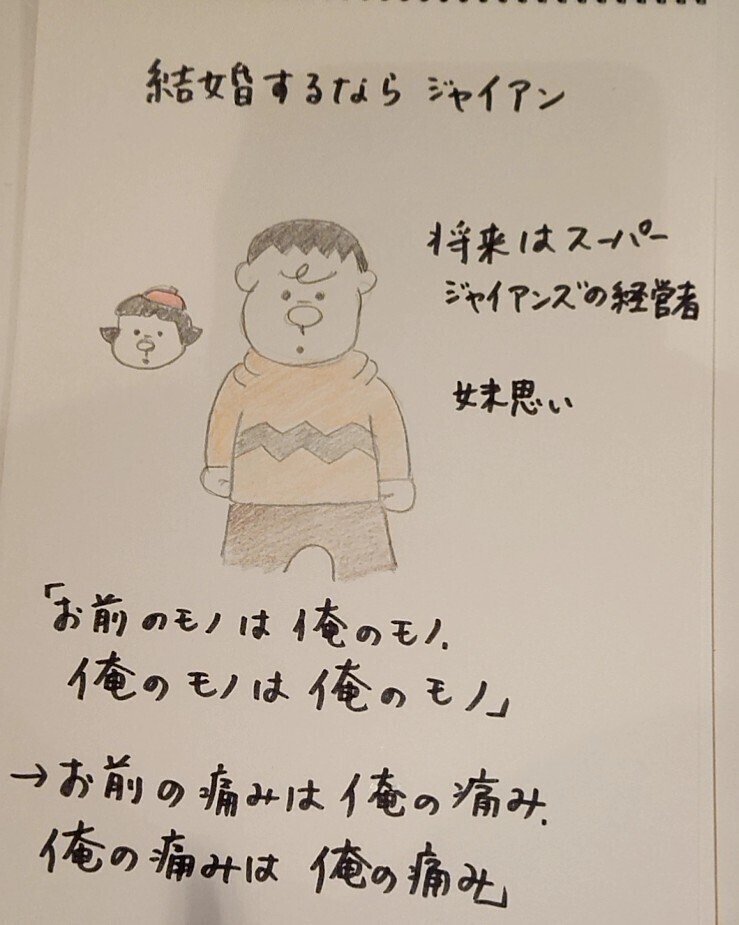 結婚するなら ジャイアン
将来はスーパー
ジャイアンズの経営者
妹思い
「お前のモノは俺のモノ.
俺のモノは俺のモノ」
→お前の痛みは俺の痛み.
俺の痛みは 俺の痛み」